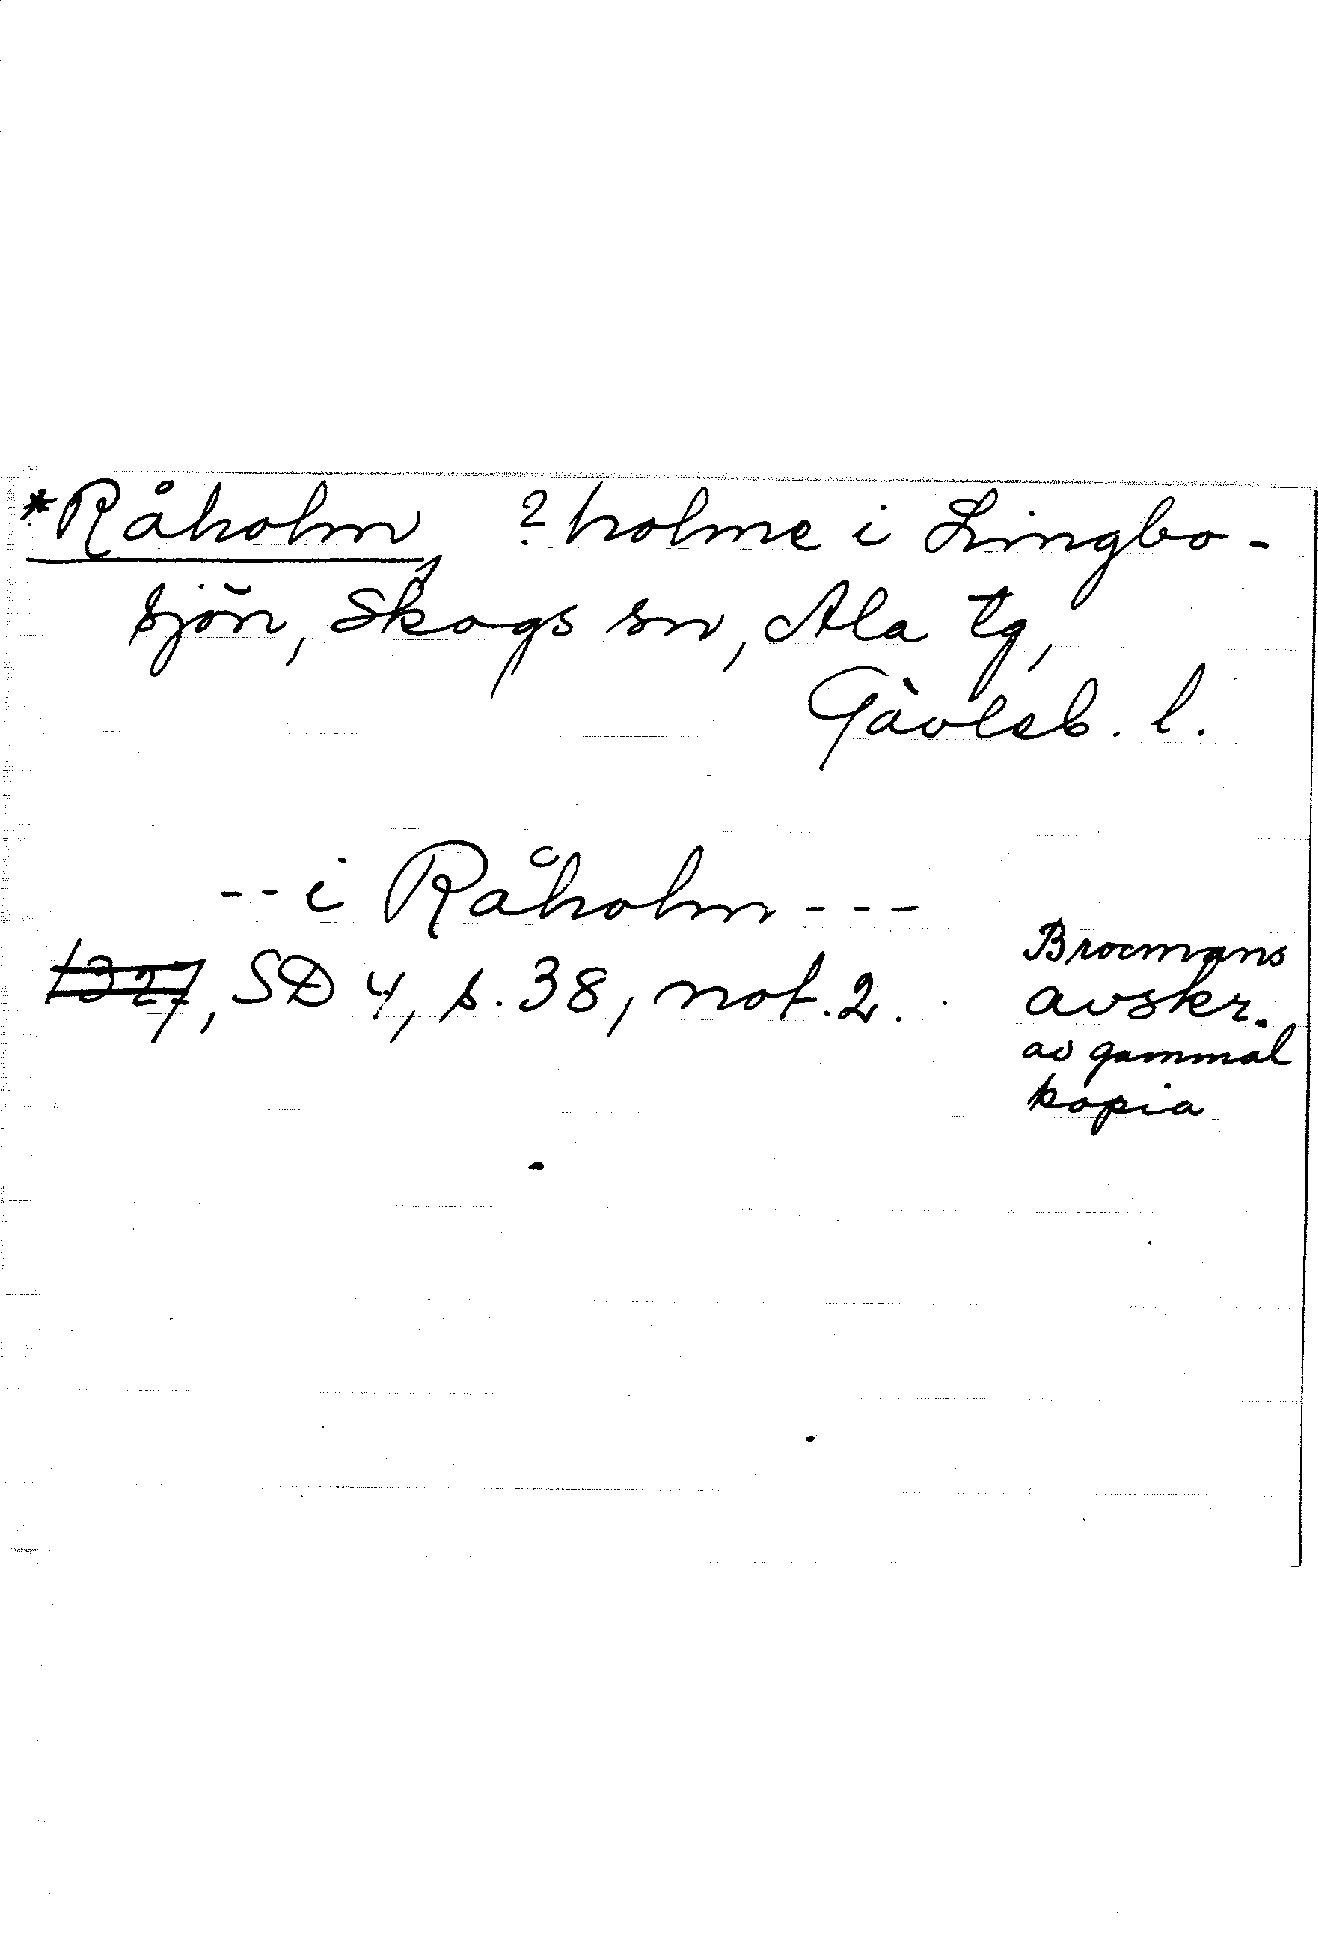 *Råholm ? holme i Lingbo-
sjön, Skogs sn, Ala tg,
Gävleb. l.
-- i Råholm ---
1327, SD 4, s. 38, not. 2.
Brocmans
avskr.
av gammal
kopia